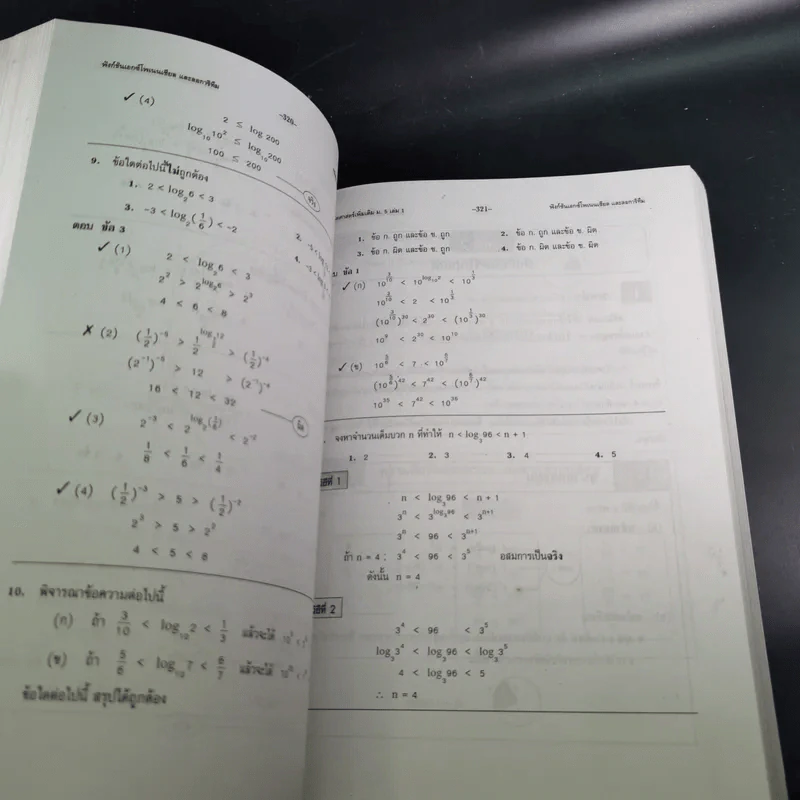 ฟังก์ชันเอกซ์โพเนนเชียล และลอการิทึม
-320-
✓ (4)
2 ≤ log 200
log₁₀10² ≤ log₁₀200
100 ≤ 200
9. ข้อใดต่อไปนี้ไม่ถูกต้อง
1. 2 < log₂6 < 3
2. -3 <
3. -3 < log₂(1/6) < -2
4. -3 <
ตอบ ข้อ 3
✓ (1) 2 < log₂6 < 3
2² > 2^(log₂6) > 2³
4 < 6 < 8
✗ (2) (1/2)⁻⁵
(2⁻¹)⁻⁵ > 12 > (2⁻¹)
16 < 12 < 32
✓ (3) 2⁻³ < 2^(log₂(1/6)) < 2⁻²
1/8 < 1/6 < 1/4
✓ (4) (1/2)⁻³ > 5 > (1/2)⁻²
2³ > 5 > 2²
4 < 5 < 8
10. พิจารณาข้อความต่อไปนี้
(ก) ถ้า 3/10 < log₁₀2 < 1/3 แล้วจะได้
(ข) ถ้า 5/6 < log₁₀7 < 6/7 แล้วจะได้
ข้อใดต่อไปนี้ สรุปได้ถูกต้อง
ม. 5 เล่ม 1
-321-
ฟังก์ชันเอกซ์โพเนนเชียล และลอการิทึม
1. ข้อ ก. ถูก และข้อ ข. ถูก
2. ข้อ ก. ถูก และข้อ ข. ผิด
3. ข้อ ก. ผิด และข้อ ข. ถูก
4. ข้อ ก. ผิด และข้อ ข. ผิด
ข้อ 1
✓ (ก) 10^(3/10) < 10^(log₁₀2) < 10^(1/3)
10^(3/10) < 2 < 10^(1/3)
(10^(3/10))³⁰ < 2³⁰ < (10^(1/3))³⁰
10⁹ < 2³⁰ < 10¹⁰
✓ (ข) < 7 <
< 7⁴² <
10³⁵ < 7⁴² < 10³⁶
จงหาจำนวนเต็มบวก n ที่ทำให้ n < log₃96 < n + 1
1. 2
2. 3
3. 4
4. 5
วิธีที่ 1
n < log₃96 < n + 1
3ⁿ < 3^(log₃96) < 3ⁿ⁺¹
3ⁿ < 96 < 3ⁿ⁺¹
ถ้า n = 4 ; 3⁴ < 96 < 3⁵ อสมการเป็นจริง
ดังนั้น n = 4
วิธีที่ 2
3⁴ < 96 < 3⁵
log₃3⁴ < log₃96 < log₃3⁵
4 < log₃96 < 5
∴ n = 4